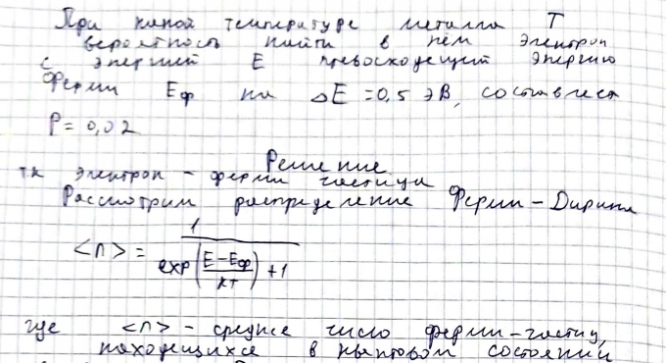 При какой температуре металла T
вероятность найти в нём электрон
с энергией E превосходящей энергию
Ферми Eф на ΔE = 0,5 эВ, составляет
P = 0,02
Решение
тк электрон - ферми частица
Рассмотрим распределение Ферми - Дирака
<n> = 1 / (exp((E - Eф)/kT) + 1)
где <n> - среднее число ферми-частиц,
находящихся в квантовом состоянии